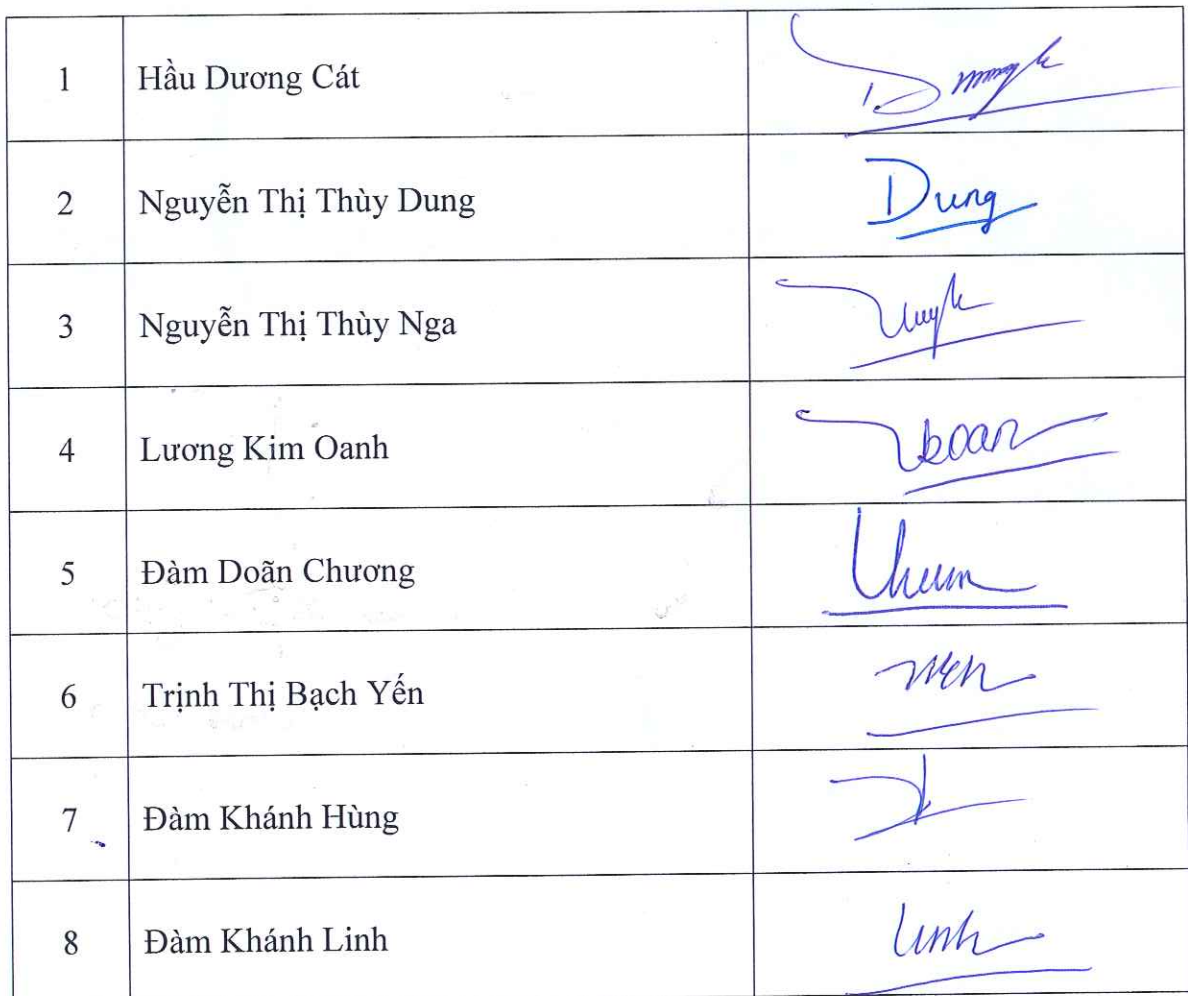 1 Hầu Dương Cát
2 Nguyễn Thị Thùy Dung Dung
3 Nguyễn Thị Thùy Nga
4 Lương Kim Oanh
5 Đàm Doãn Chương
6 Trịnh Thị Bạch Yến
7 Đàm Khánh Hùng
8 Đàm Khánh Linh Linh